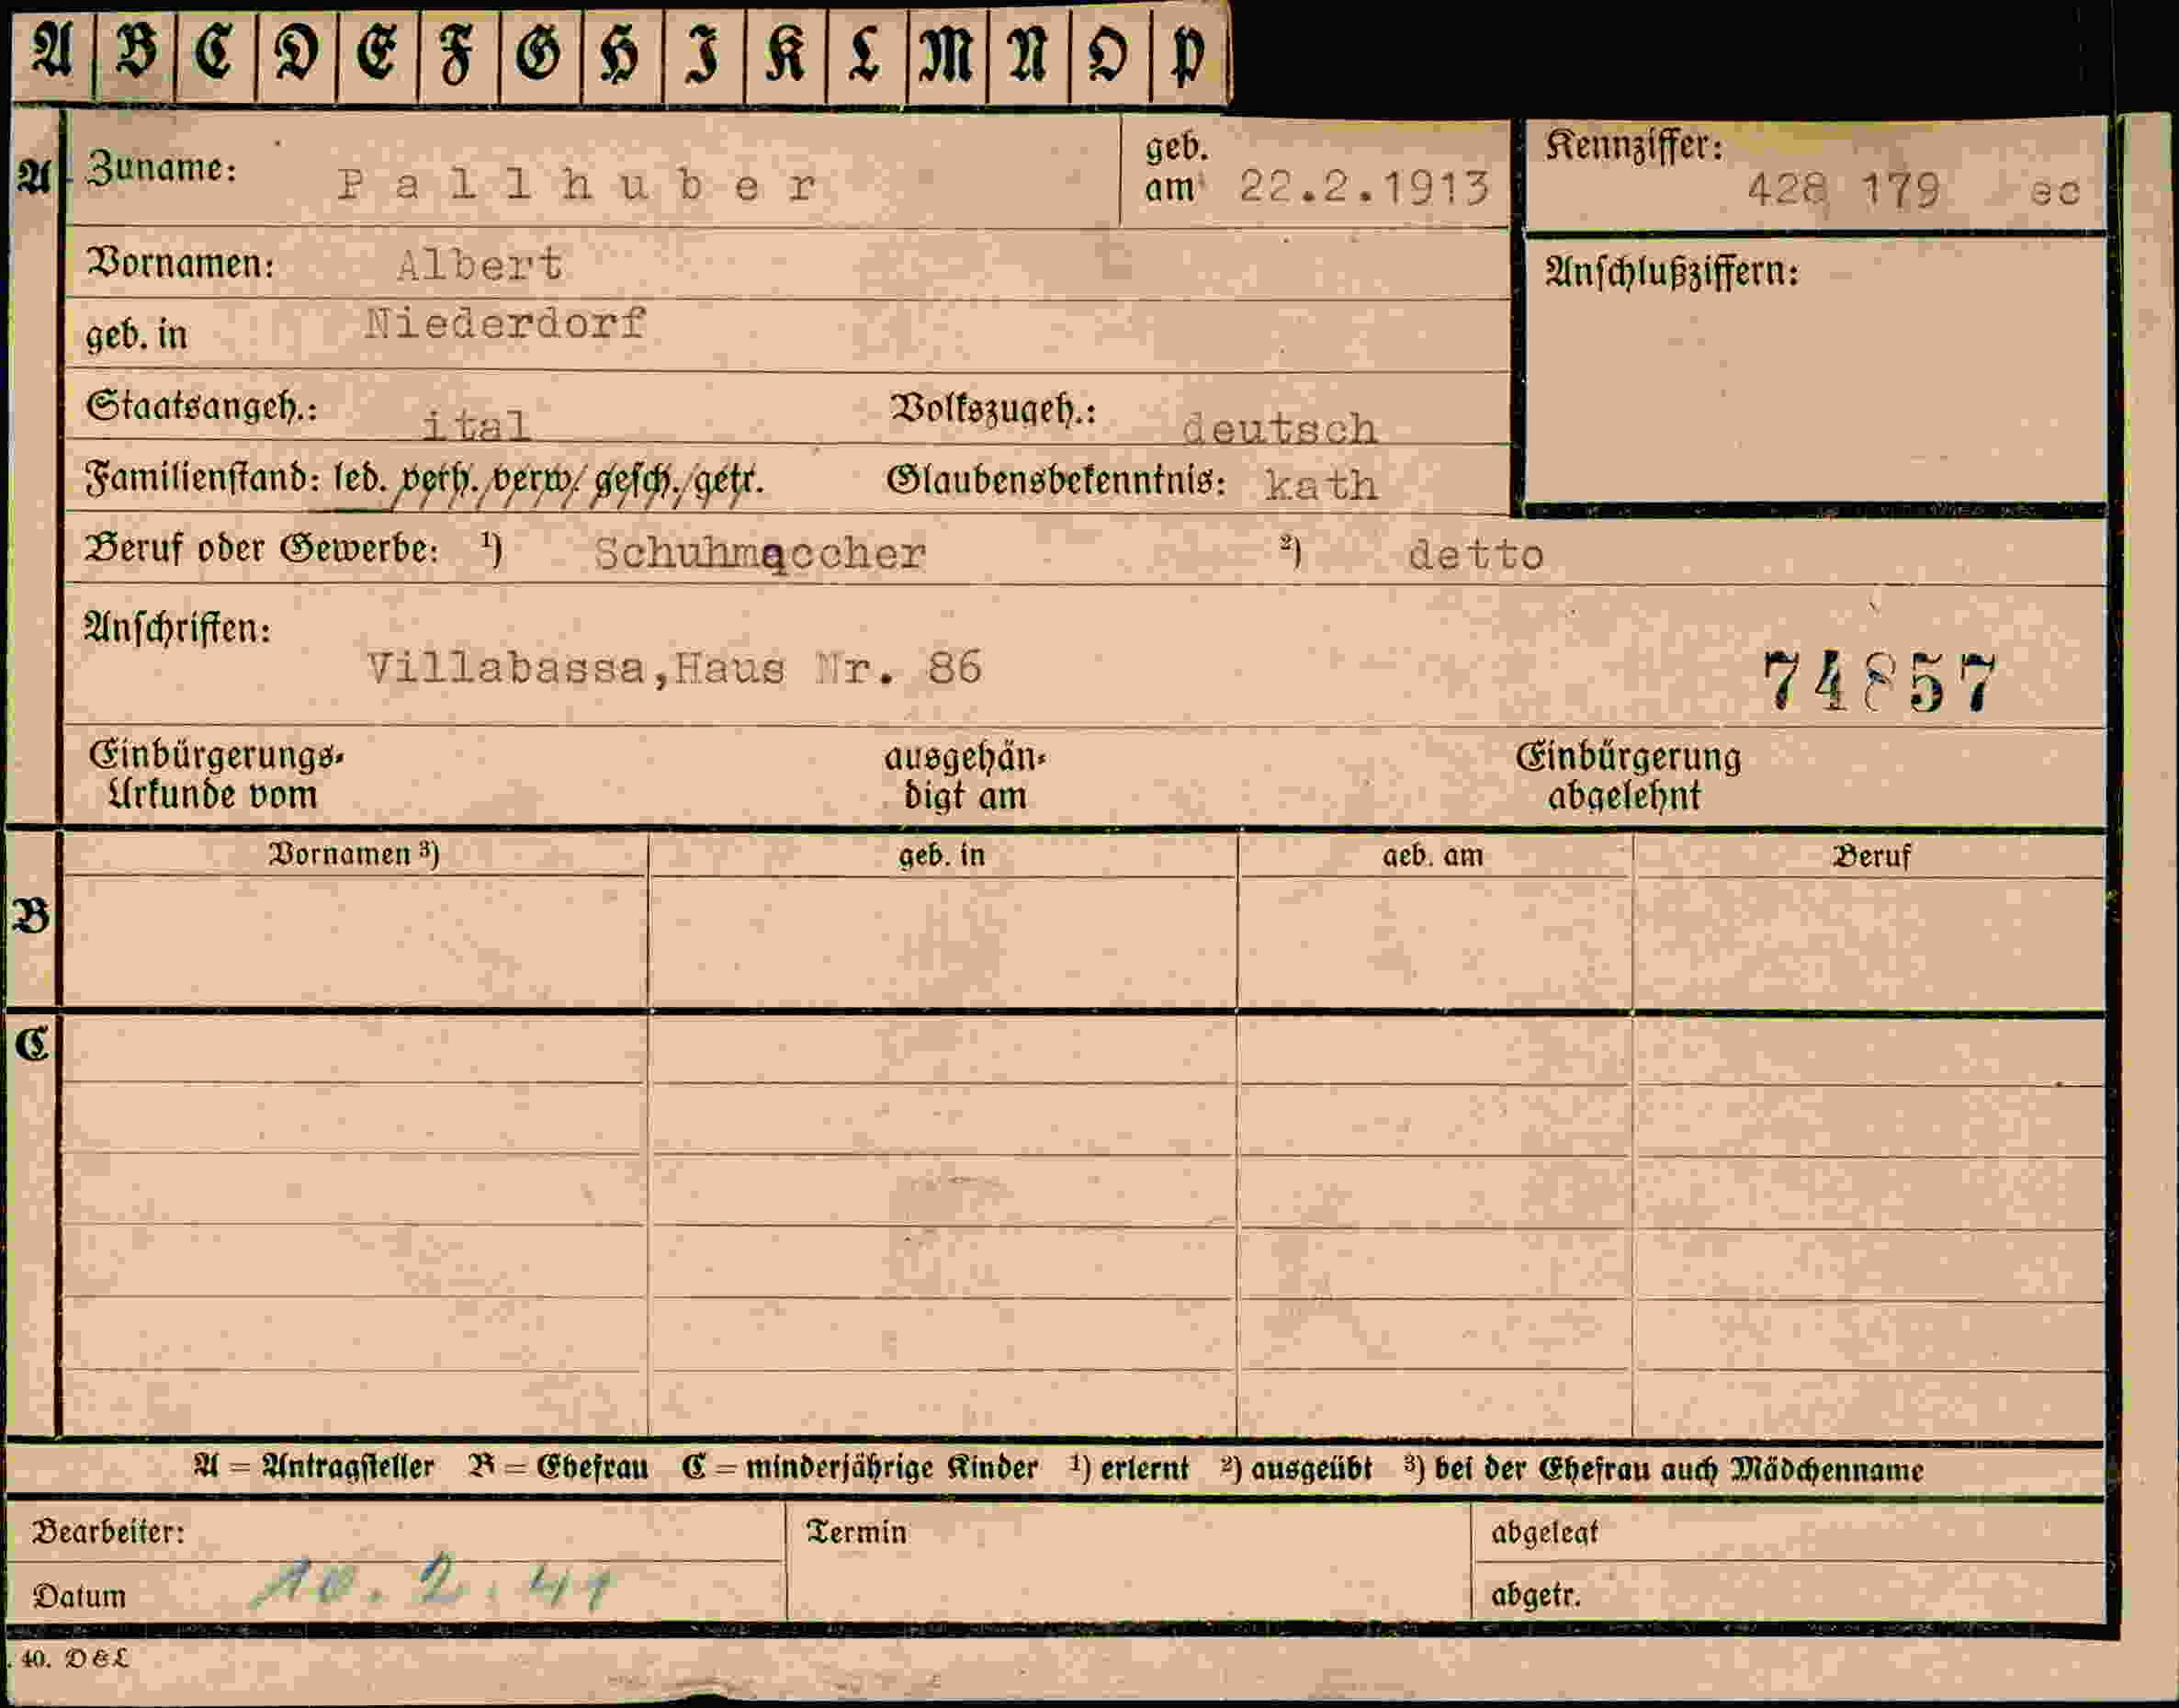 A B C D E F G H I K L M N O P
A Zuname: Pallhuber geb. am 22.2.1913 Kennziffer: 428 179 ec
Vornamen: Albert Anschlußziffern:
geb. in Niederdorf
Staatsangeh.: ital Volkszugeh.: deutsch
Familienstand: led. verh. verw. gesch. getr. Glaubensbekenntnis: kath
Beruf oder Gewerbe: ¹) Schuhmaccher ²) detto
Anschriften:
Villabassa,Haus Nr. 86 74857
Einbürgerungs- ausgehän- Einbürgerung
Urkunde vom digt am abgelehnt
Vornamen ³) geb. in geb. am Beruf
B
C
A = Antragsteller B = Ehefrau C = minderjährige Kinder ¹) erlernt ²) ausgeübt ³) bei der Ehefrau auch Mädchenname
Bearbeiter: Termin abgelegt
Datum 10.2.41 abgetr.
. 40. D&L